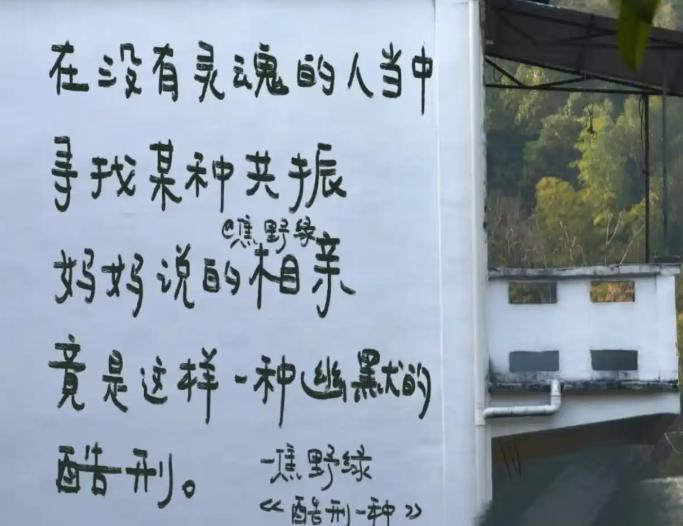 在没有灵魂的人当中
寻找某种共振
@焦野绿
妈妈说的相亲
竟是这样一种幽默的
酷刑。
—焦野绿
《酷刑一种》